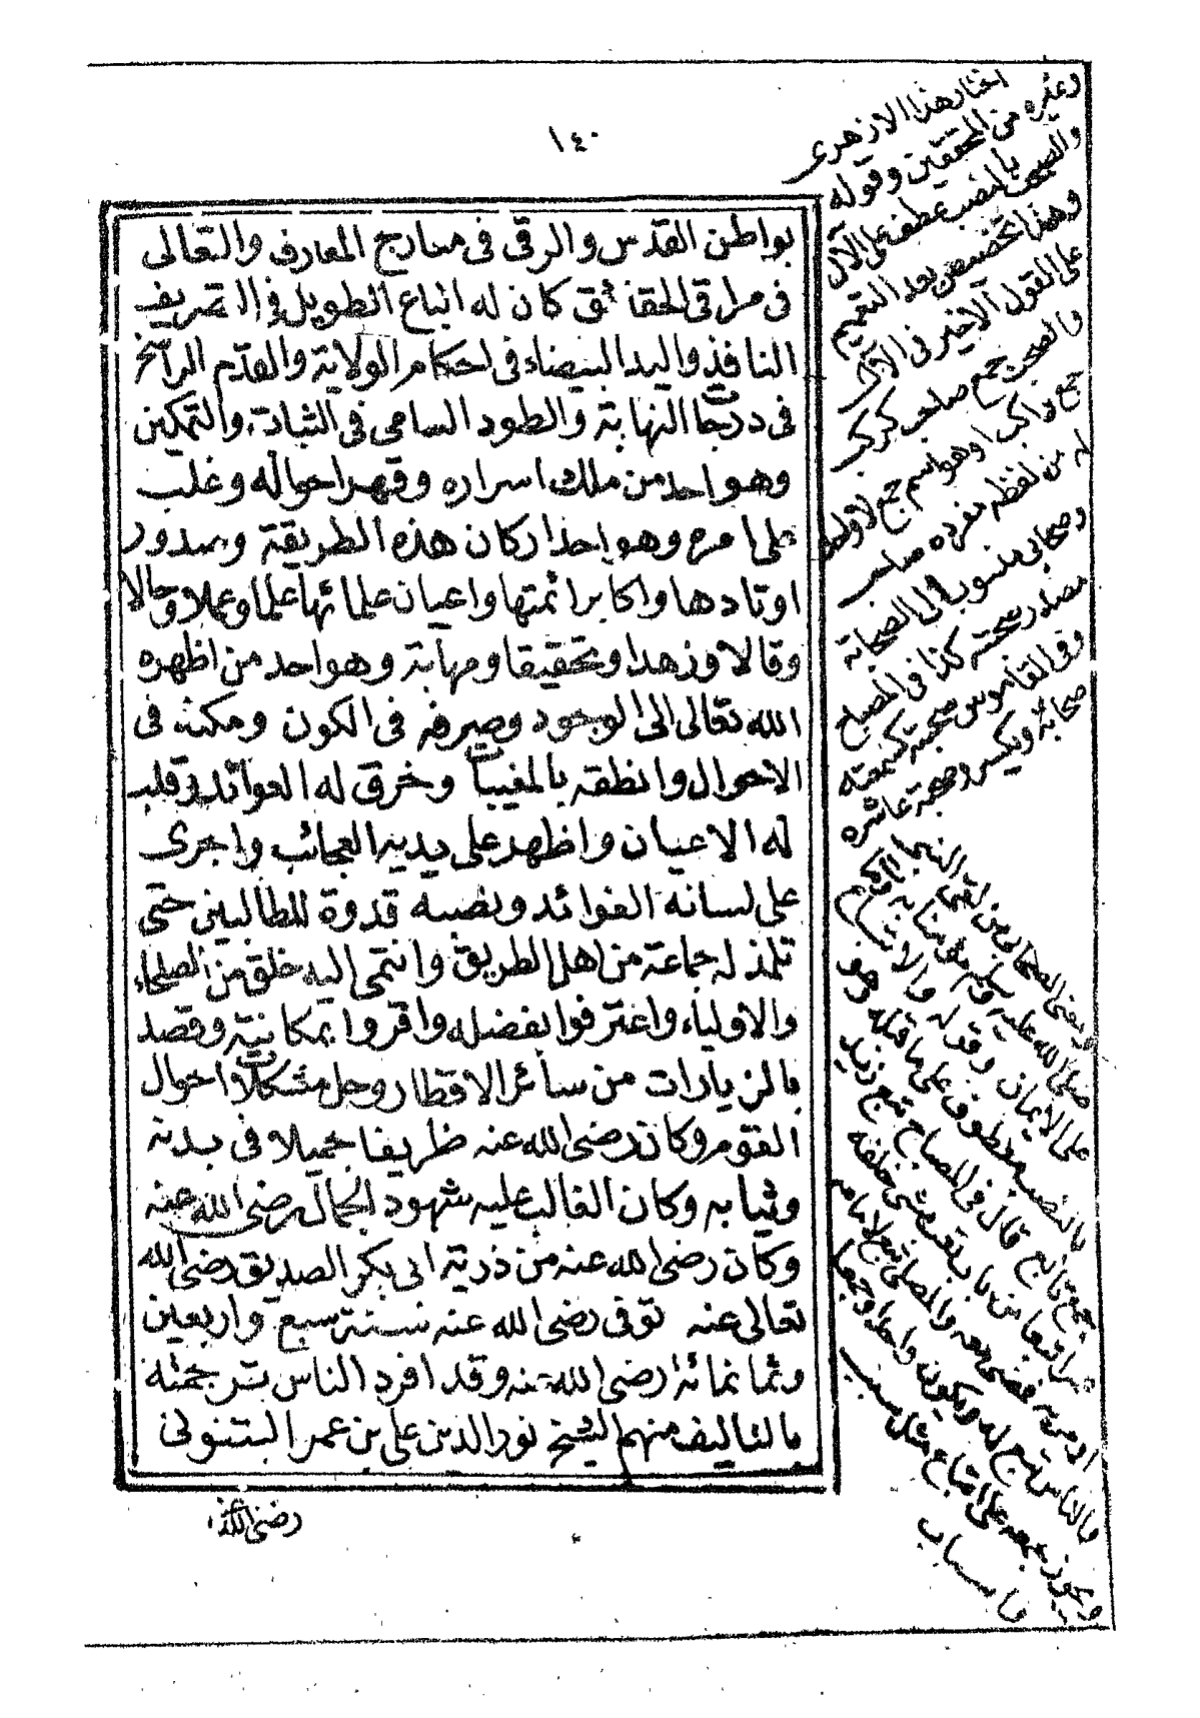 ١٤٠
بواطن القدس والرقى فى معارج المعارف والتعالى
فى مراقى الحقائق كان له الباع الطويل فى التصريف
النافذ واليد البيضاء فى احكام الولاية والقدم الراسخ
فى درجات النهاية والطود السامى فى الثبات والتمكين
وهو احد من ملك اسراره وقهر احواله وغلب
على امره وهو احد اركان هذه الطريقة وصدور
اوتادها واكابر ائمتها واعيان علمائها علما وعملا وحالا
وقالا وزهدا وتحقيقا ومهابة وهو احد من اظهره
الله تعالى الى الوجود وصرفه فى الكون ومكنه فى
الاحوال وانطقه بالمغيبات وخرق له العوائد وقلب
له الاعيان واظهر على يديه العجائب واجرى
على لسانه الفوائد ونصبه قدوة للطالبين حتى
تلمذ له جماعة من اهل الطريق وانتمى اليه خلق من الصلحاء
والاولياء واعترفوا بفضله واقروا بمكانته وقصد
بالزيارات من سائر الاقطار وحل مشكلات احوال
القوم وكان رضى الله عنه ظريفا جميلا فى بدنه
وثيابه وكان الغالب عليه شهود الجمال رضى الله عنه
وكان رضى الله عنه من ذرية ابى بكر الصديق رضى الله
تعالى عنه توفى رضى الله عنه سنة سبع واربعين
وثمانمائة رضى الله عنه وقد افرد الناس ترجمته
بالتاليف منهم الشيخ نور الدين على بن عمر البتنونى
رضى الله عنه
اختار هذا الازهرى
وغيره من المحققين وقوله
والصحب بالنصب عطف على الآل
وهذا تخصيص بعد التعميم
على القول الاخير فى الآل
والصحب جمع صاحب كركب
جمع راكب او هو اسم جمع لا واحد
له من لفظه مفرده صاحب
وصحابى منسوب الى الصحابة
مصدر صحبته كذا فى المصباح
وفى القاموس صحبه كسمعه
صحابة ويكسر وصحبة عاشره
صلى الله عليه وسلم مؤمنا به
على الايمان وقوله والاتباع
بالنصب معطوف على ما قبله وهو
جمع تابع قال فى المصباح تبع زيد
عمرا تبعا من باب تعب مشى خلفه
او مر به فمضى معه والمصلى تبع لامامه
والناس تبع له ويكون واحدا وجمعا
ويجوز جمعه على اتباع مثل سبب
واسباب